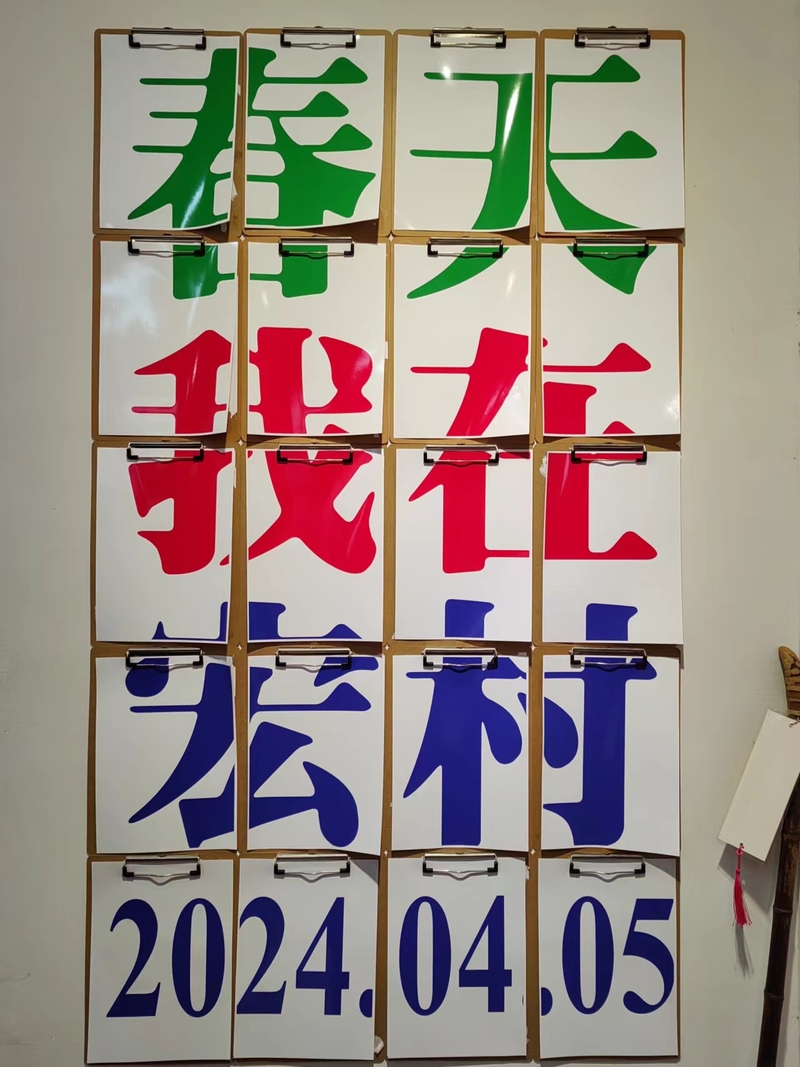 春天
我在
宏村
2024.04.05